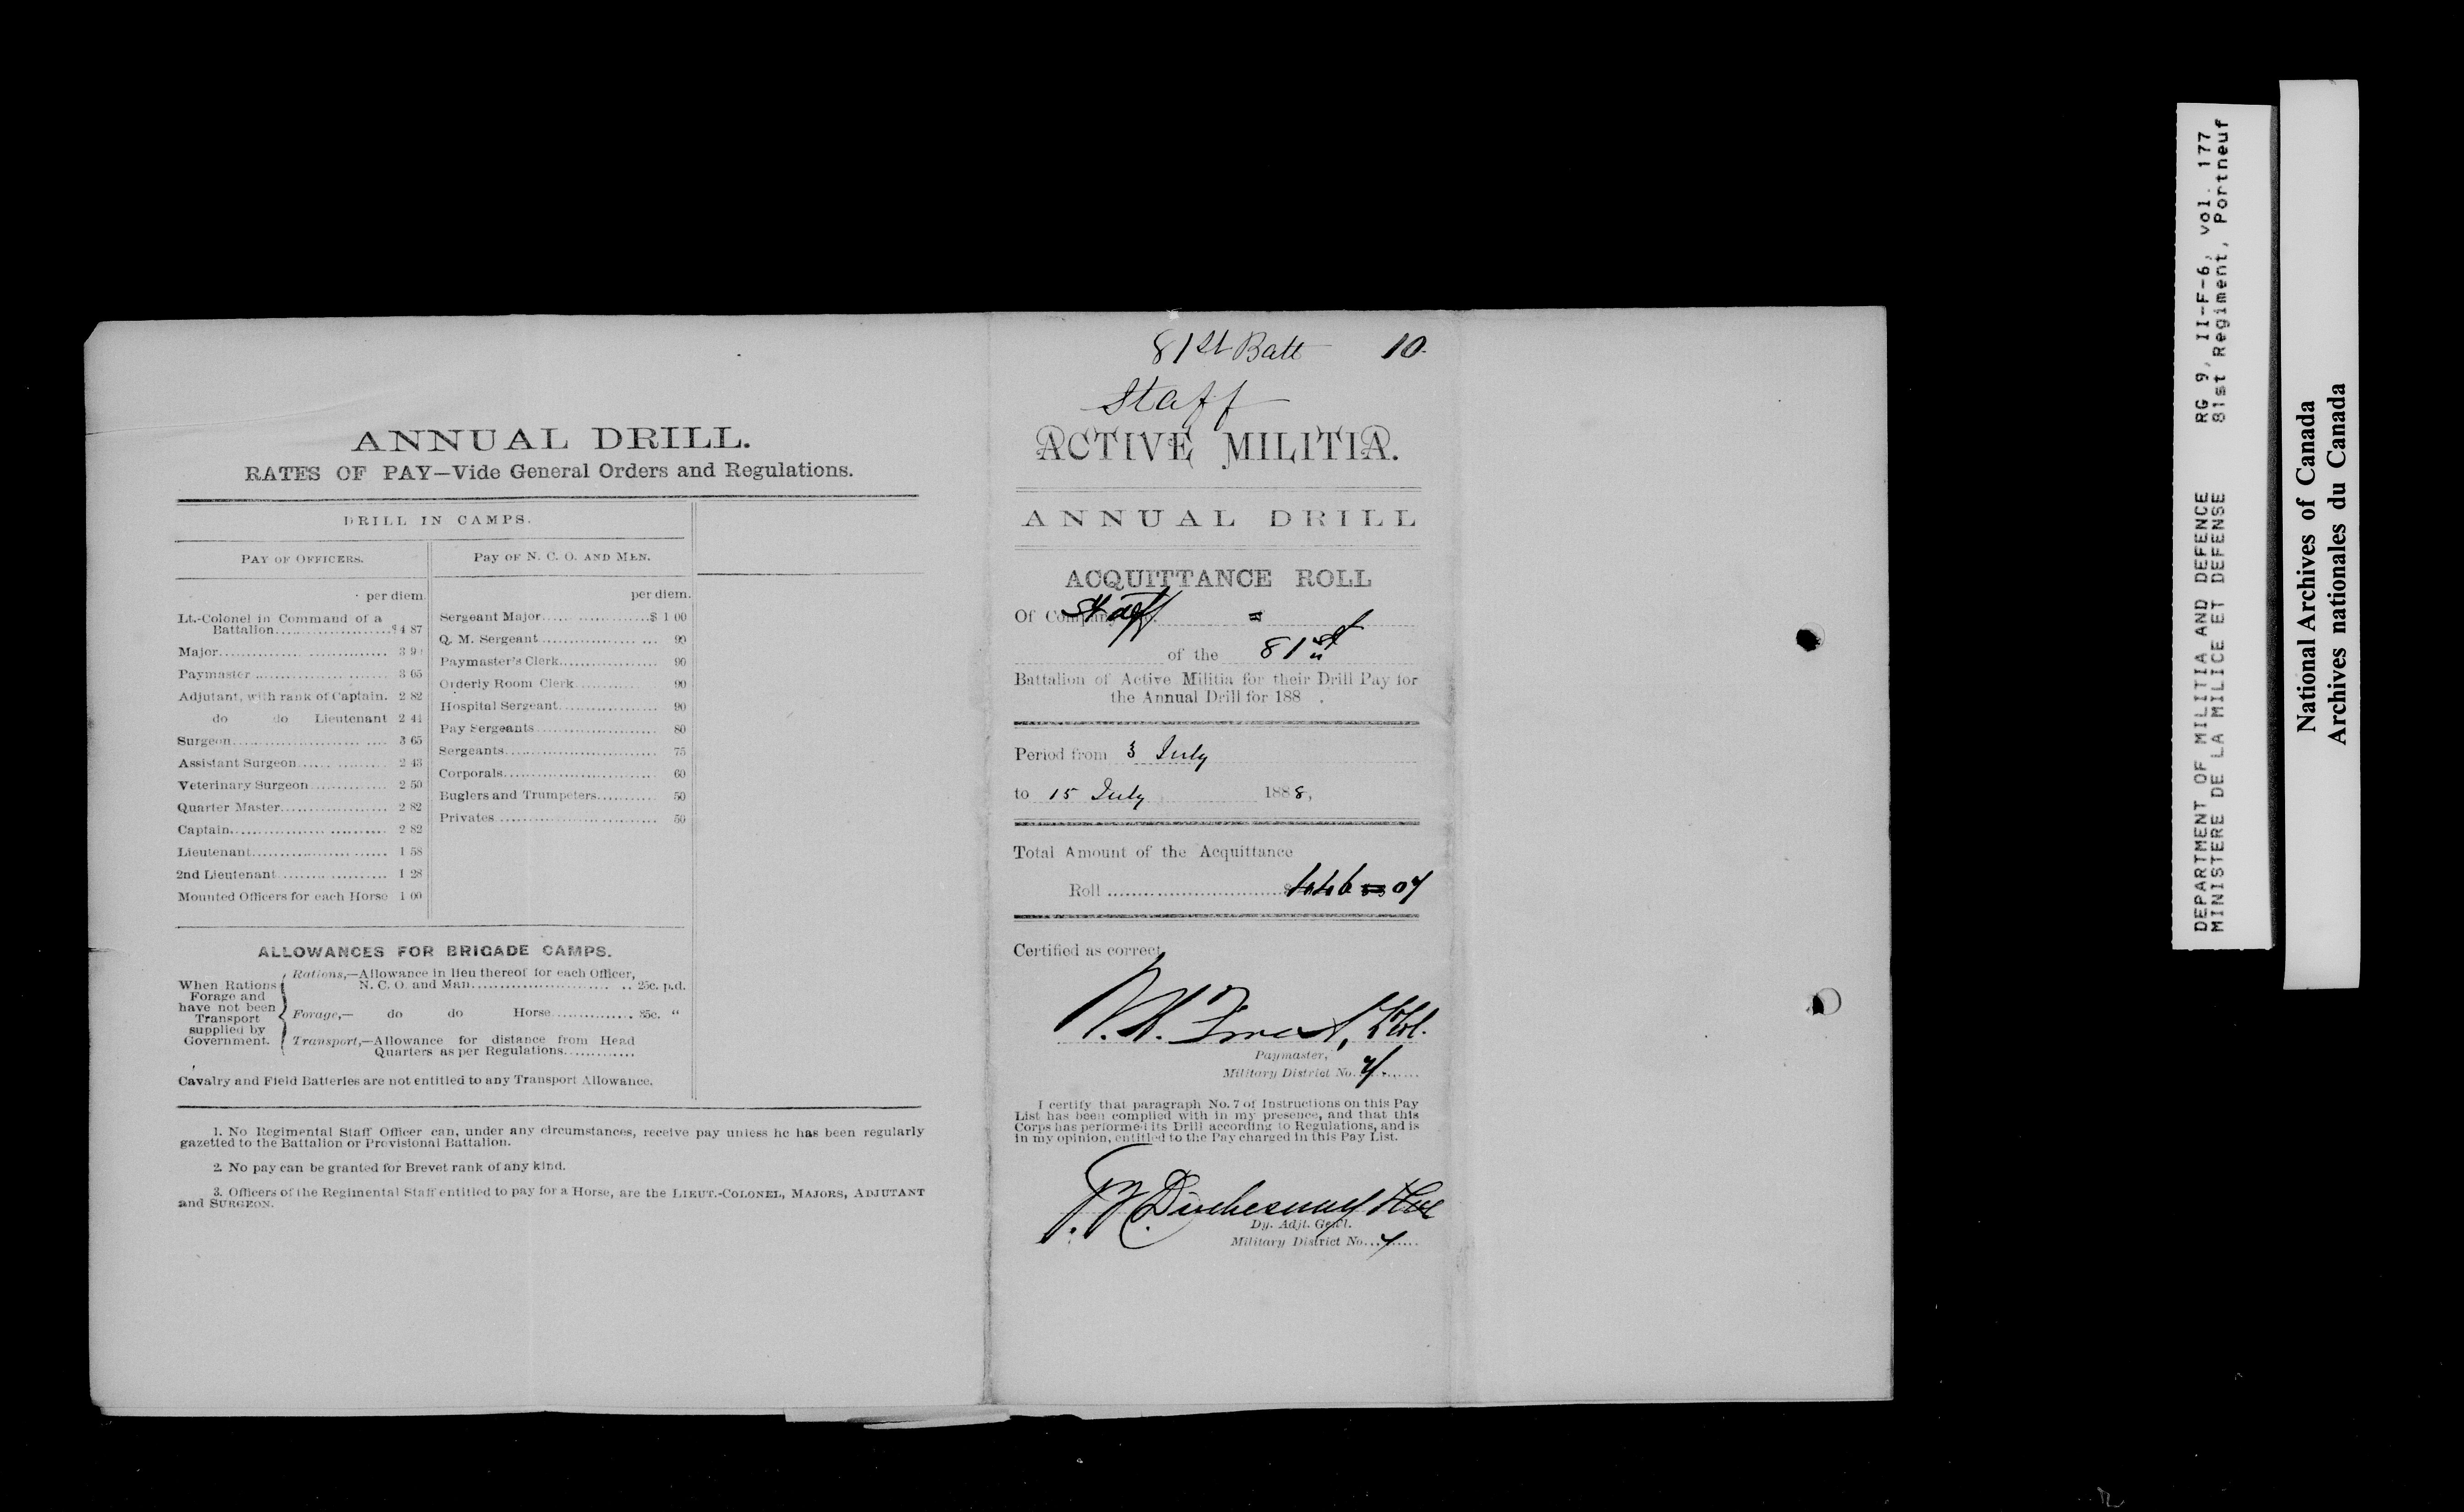 ANNUAL DRILL.
RATES OF PAY—Vide General Orders and Regulations.
DRILL IN CAMPS.
PAY OF OFFICERS.
per diem.
Lt.-Colonel in Command of a
Battalion.....................$4 87
Major.............................. 3 90
Paymaster ....................... 3 65
Adjutant, with rank of Captain. 2 82
do do Lieutenant 2 44
Surgeon........................... 3 65
Assistant Surgeon................ 2 43
Veterinary Surgeon.............. 2 50
Quarter Master................... 2 82
Captain............................ 2 82
Lieutenant........................ 1 58
2nd Lieutenant................... 1 28
Mounted Officers for each Horse 1 00
PAY OF N. C. O. AND MEN.
per diem.
Sergeant Major...................$ 1 00
Q. M. Sergeant..................... 90
Paymaster's Clerk.................. 90
Orderly Room Clerk............... 90
Hospital Sergeant.................. 90
Pay Sergeants...................... 80
Sergeants........................... 75
Corporals........................... 60
Buglers and Trumpeters........... 50
Privates............................. 50
ALLOWANCES FOR BRIGADE CAMPS.
When Rations
Forage and
have not been
Transport
supplied by
Government.
Rations,—Allowance in lieu thereof for each Officer,
N. C. O. and Man........................... 25c. p.d.
Forage,— do do Horse............... 35c. "
Transport,—Allowance for distance from Head
Quarters as per Regulations.............
Cavalry and Field Batteries are not entitled to any Transport Allowance.
1. No Regimental Staff Officer can, under any circumstances, receive pay unless he has been regularly
gazetted to the Battalion or Provisional Battalion.
2. No pay can be granted for Brevet rank of any kind.
3. Officers of the Regimental Staff entitled to pay for a Horse, are the LIEUT.-COLONEL, MAJORS, ADJUTANT
and SURGEON.
81st Batt 10.
Staff
ACTIVE MILITIA.
ANNUAL DRILL
ACQUITTANCE ROLL
Of Company Staff
of the 81st
Battalion of Active Militia for their Drill Pay for
the Annual Drill for 188 .
Period from 3 July
to 15 July 1888,
Total Amount of the Acquittance
Roll ..............................$446 07
Certified as correct,
Paymaster,
Military District No. 7
I certify that paragraph No. 7 of Instructions on this Pay
List has been complied with in my presence, and that this
Corps has performed its Drill according to Regulations, and is
in my opinion, entitled to the Pay charged in this Pay List.
Duchesnay
Dy. Adjt. Genl.
Military District No. 7
DEPARTMENT OF MILITIA AND DEFENCE RG 9, II-F-6, vol. 177
MINISTERE DE LA MILICE ET DEFENSE 81st Regiment, Portneuf
National Archives of Canada
Archives nationales du Canada